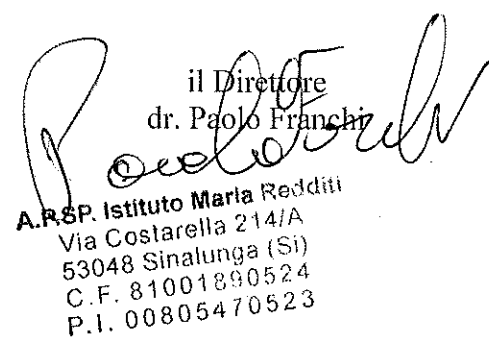 il Direttore
dr. Paolo Franchi
Paolo Franchi
A.P.S.P. Istituto Maria Redditi
Via Costarella 214/A
53048 Sinalunga (Si)
C.F. 81001890524
P.I. 00805470523